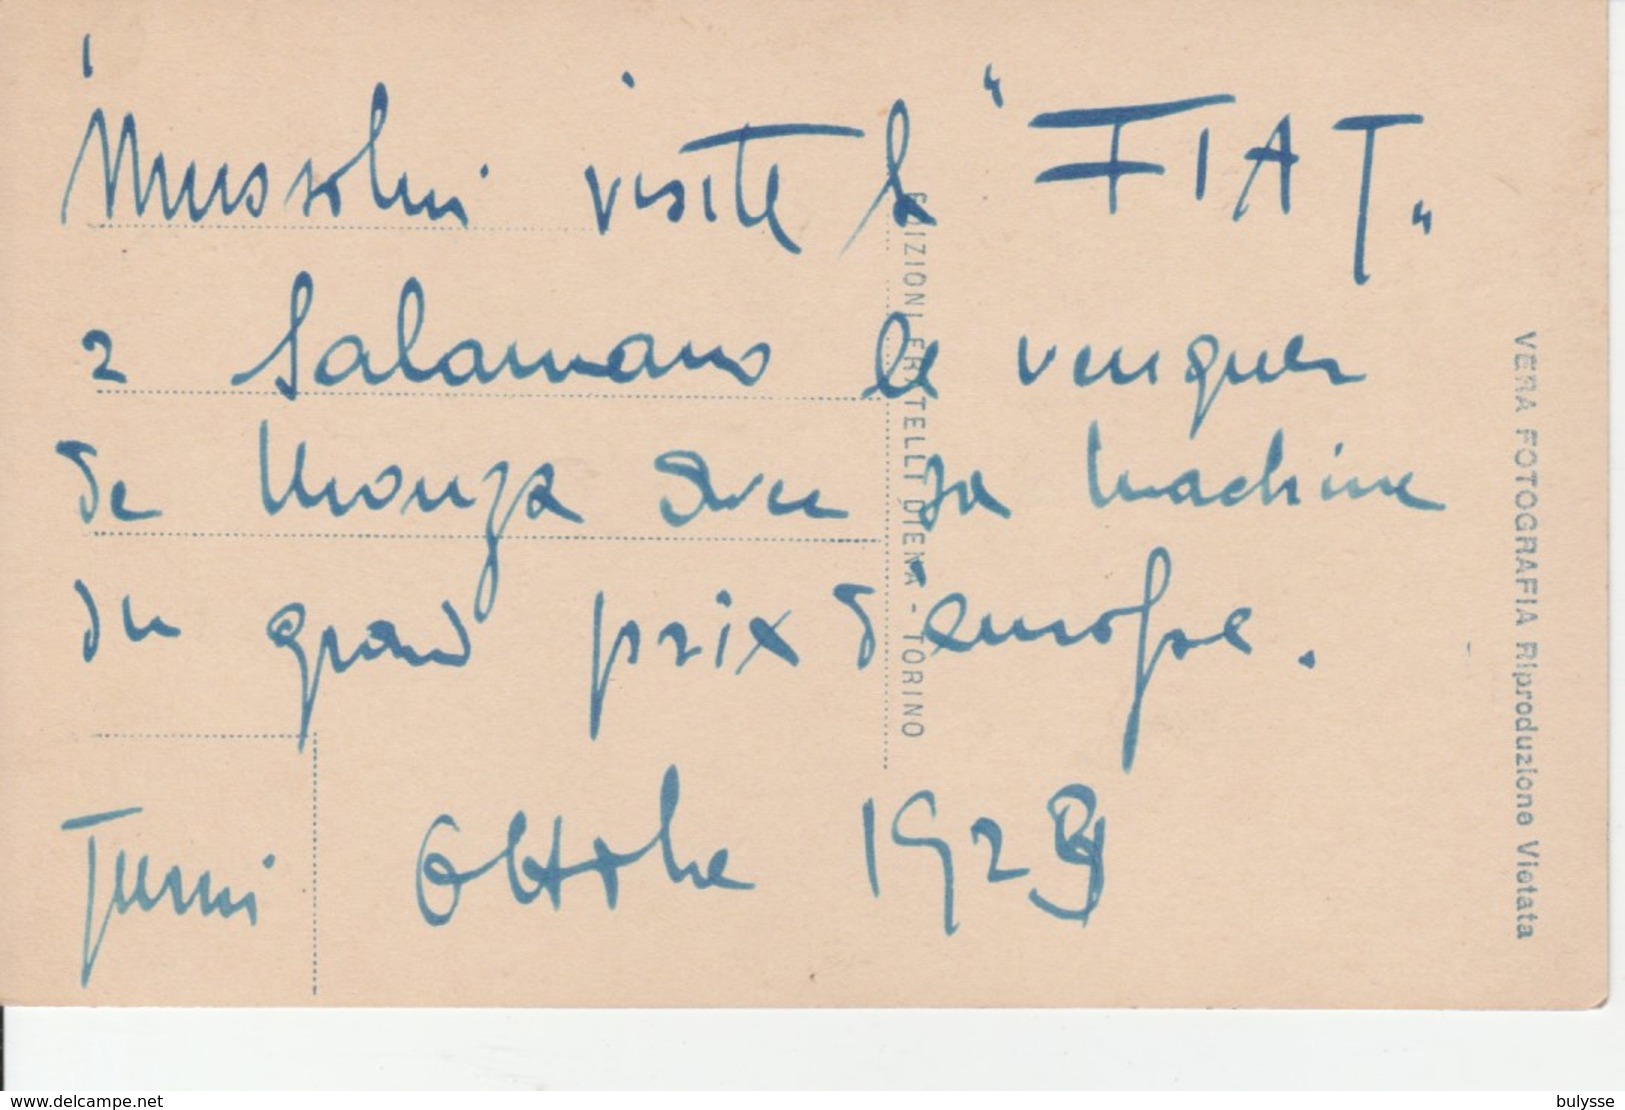 1
Mussolini visite la "FIAT"
2 Salamano le vainqueur
de Monza avec sa machine
du grand prix d'europe.
Turin Ottobre 1923
EDIZIONI FRATELLI DIENA - TORINO
VERA FOTOGRAFIA Riproduzione Vietata
www.delcampe.net
bulysse